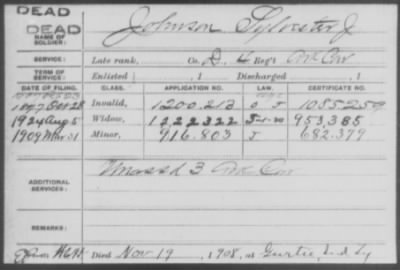 DEAD
DEAD
NAME OF SOLDIER: Johnson Sylvester J
SERVICE: Late rank, Co. D, Reg't Ark Cav
TERM OF SERVICE: Enlisted , 1 Discharged , 1
DATE OF FILING. CLASS. APPLICATION NO. LAW. CERTIFICATE NO.
1897 Oct 28 Invalid, 1200.213 1055259
1924 Aug 5 Widow, 1222322 5-1-20 953,385
1909 Mar 31 Minor, 916.803 J 682.379
ADDITIONAL SERVICES: 3 Ark Cav
REMARKS:
Died Nov 19, 1908, at